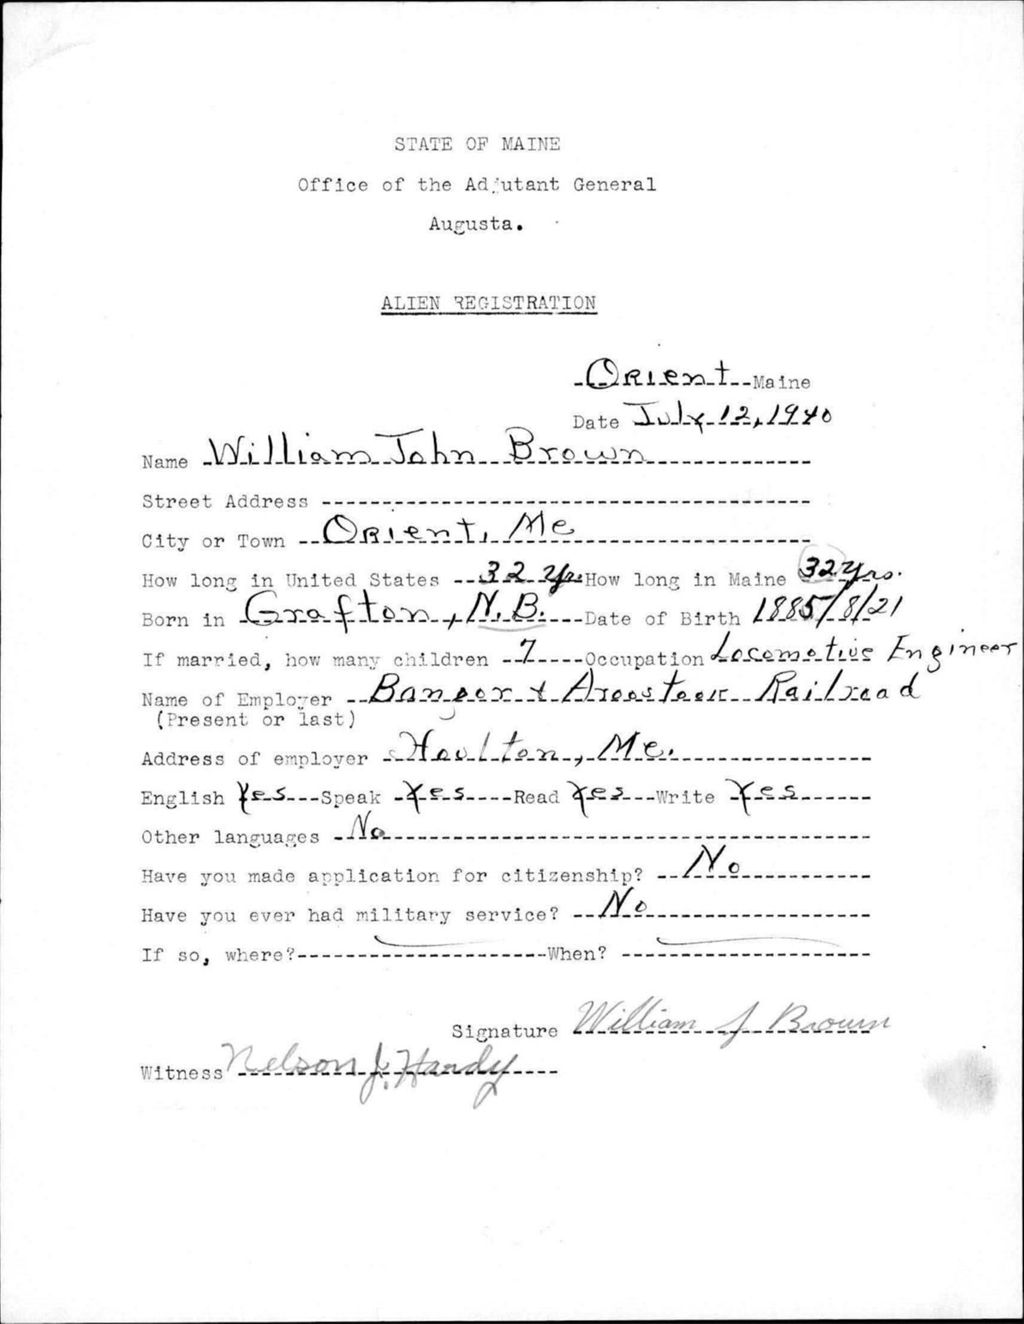 STATE OF MAINE
Office of the Adjutant General
Augusta.
ALIEN REGISTRATION
Orient Maine
Date July 12, 1940
Name William John Brown
Street Address
City or Town Orient, Me
How long in United States 32 Yrs How long in Maine 32 Yrs.
Born in Grafton, N.B. Date of Birth 1885/8/21
If married, how many children 7 Occupation Locomotive Engineer
Name of Employer Bangor & Aroostook Railroad
(Present or last)
Address of employer Houlton, Me.
English Yes Speak Yes Read Yes Write Yes
Other languages No
Have you made application for citizenship? No
Have you ever had military service? No
If so, where? When?
Signature William J Brown
Witness Nelson J. Handy